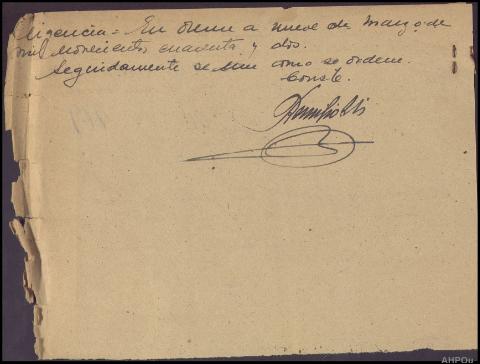 ligencia = En Orense a nueve de Marzo de
mil novecientos cuarenta y dos.
Seguidamente se une como se ordena.
Conste.
AHPOu